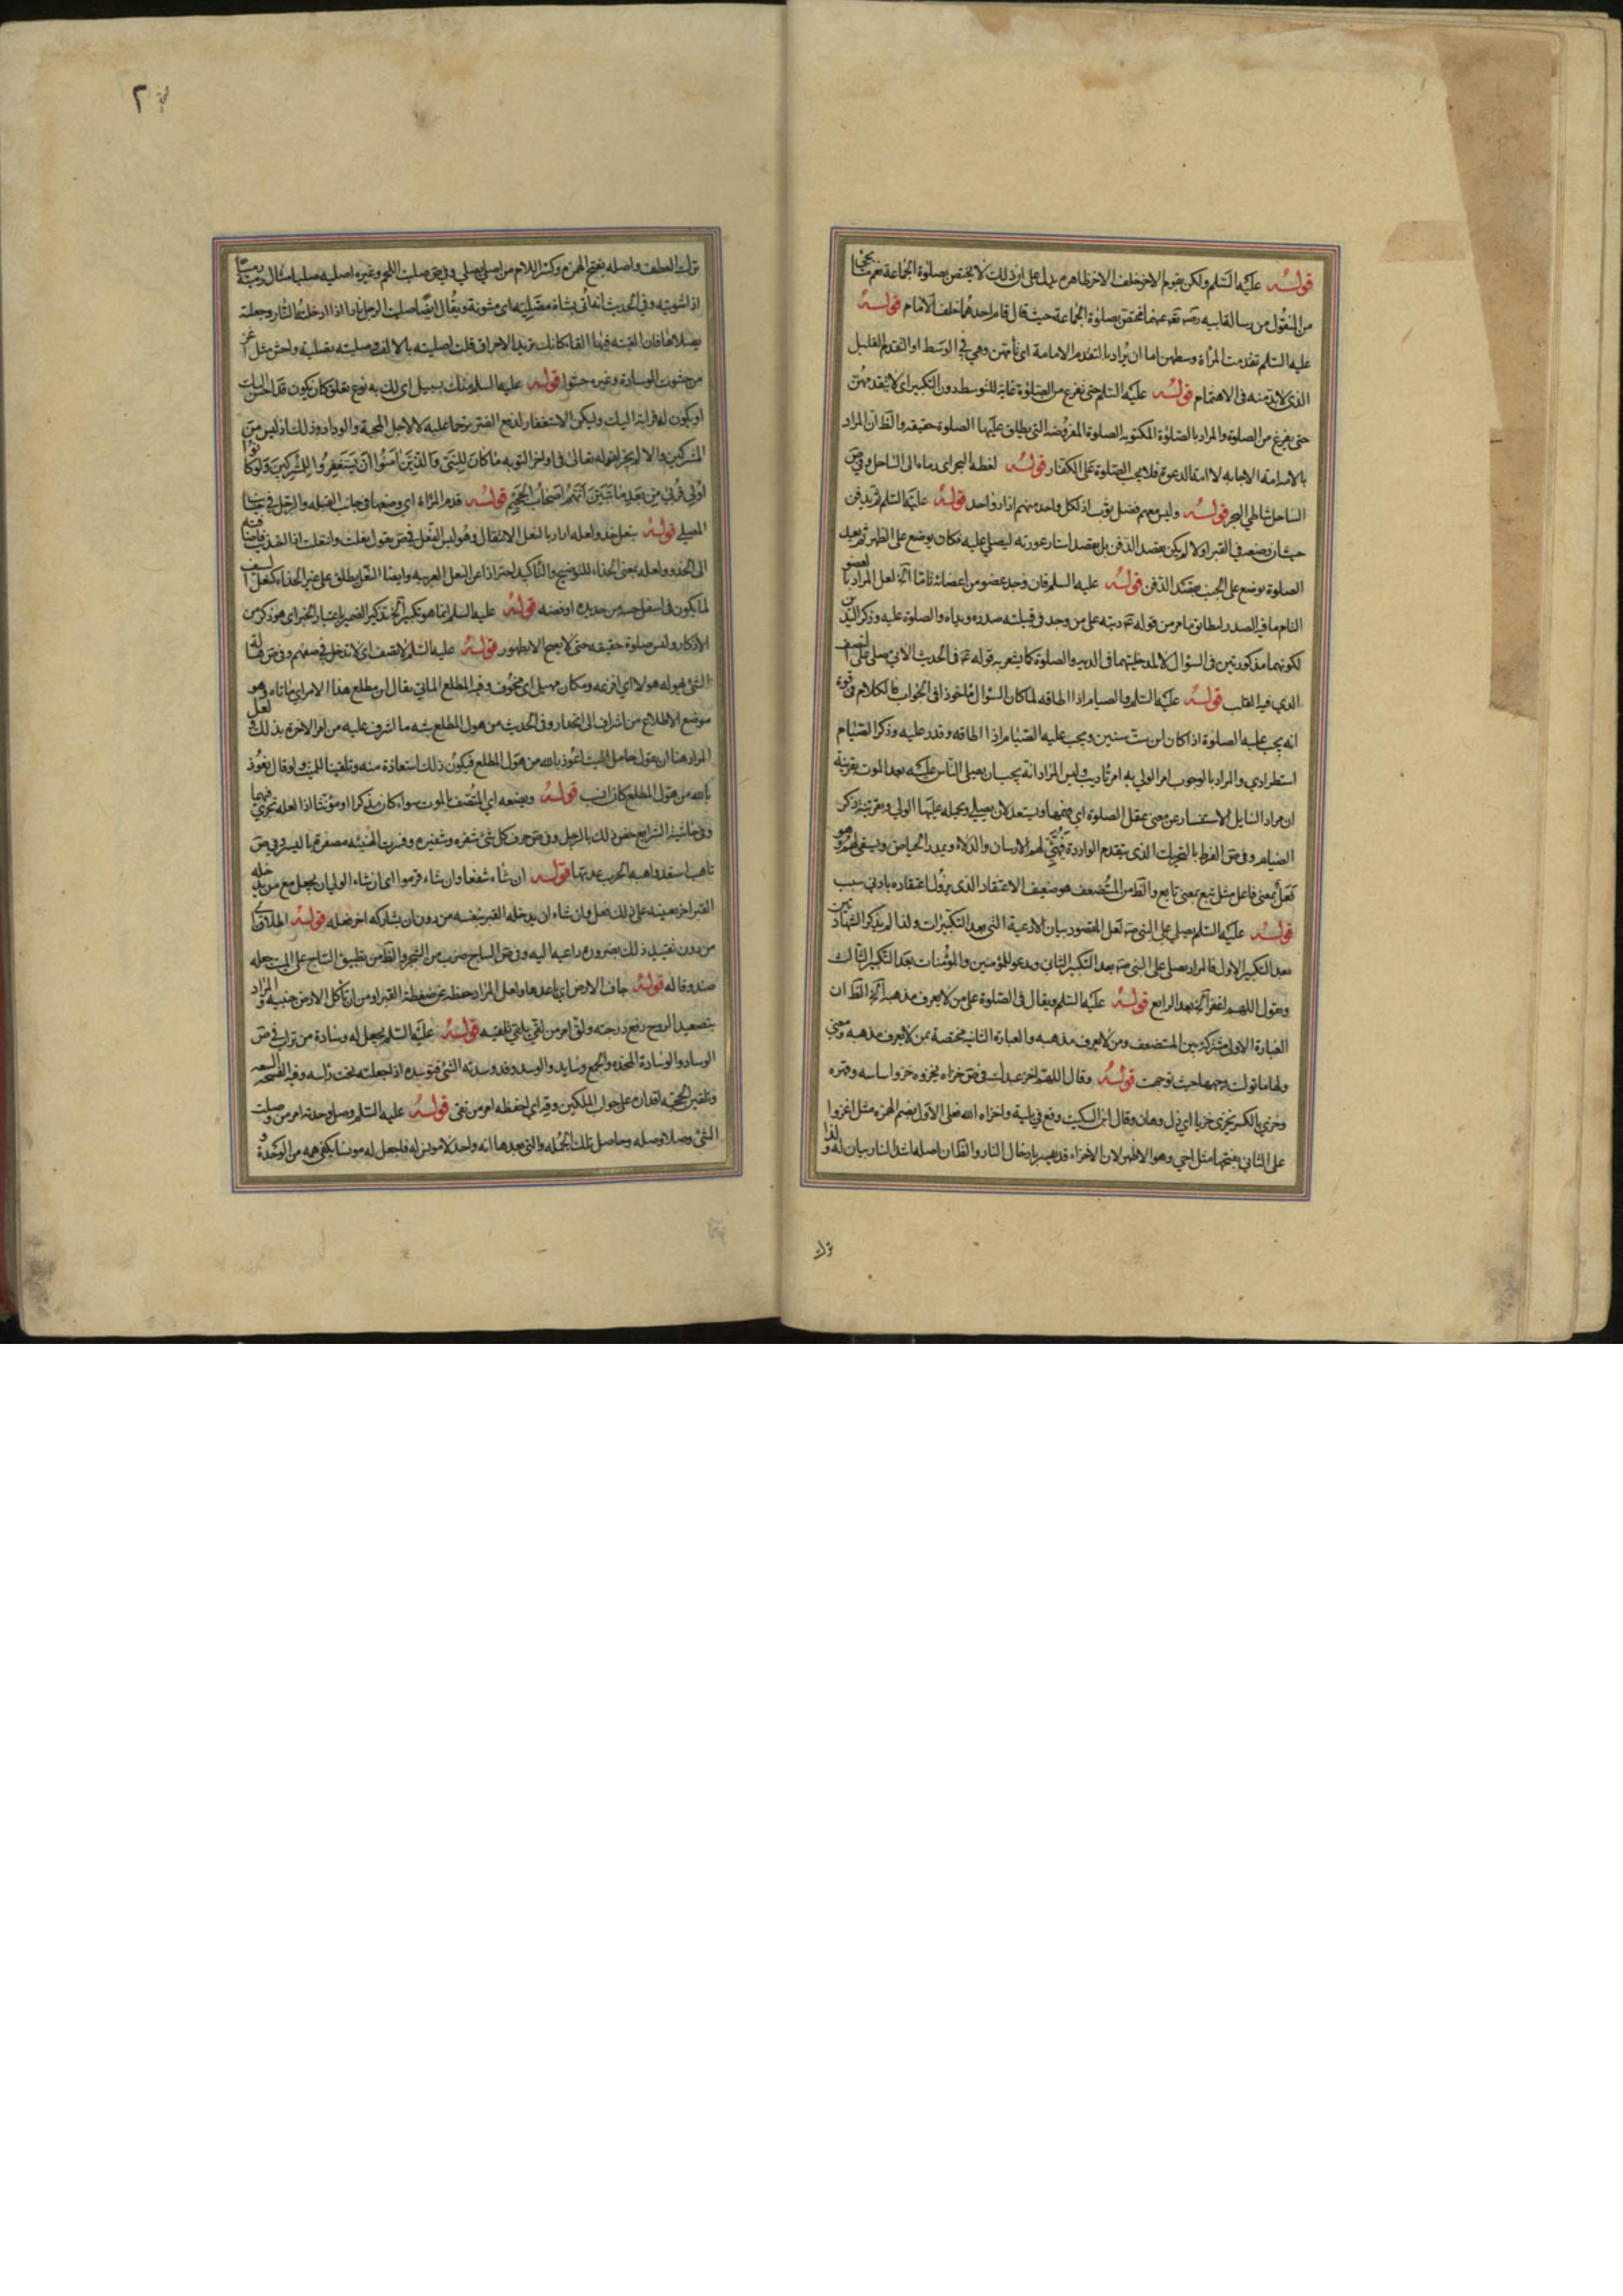 قوله عليه السلم ولكن يقوم الاخر خلف الاخر ظاهره يدل على ان ذلك لا يختص بصلوة الجماعة نعم ما يجئ
من المنقول من رسالة ابيه رضى عنهما مختص بصلوة الجماعة حيث قال قام احدهما خلف الامام قوله
عليه السلم تقدمت المرأة وسطهن اما ان يراد بالتقدم الامامة اى تأمهن وهي في الوسط او التقدم القليل
الذى لا بد منه فى الاهتمام قوله عليه السلم حتى تفرغ من الصلوة غاية للتوسط دون التكبير اى لا يتقدمهن
حتى يفرغ من الصلوة والمراد بالصلوة المكتوبة الصلوة المفروضة التى يطلق عليها الصلوة حقيقة والظ ان المراد
بالامة امة الاجابه لا امة الدعوة فلا يجب الصلوة على الكفار قوله لفظه البحر اى رماه الى الساحل وفي ص
الساحل شاطي البحر قوله وليس معهم فضل ثوب اذ لكل واحد منهم ازار واحد قوله عليه السلم ثم يدفن
حيث ان وضعه في القبر اولا لم يكن بقصد الدفن بل بقصد استار عورته ليصلي عليه فكان يوضع على الظهر ثم بعد
الصلوة يوضع على الجنب بقصد الدفن قوله عليه السلم فان وجد عضو من اعضائه تاما آلخ لعل المراد بالعضو
التام ما فيه الصدر ليطابق ما مر من قوله ديته على من وجد في قبيلته صدره ويداه والصلوة عليه وذكر اليدين
لكونهما مذكورتين فى السؤال لا لمدخليتهما فى الديه والصلوة كما يشعر به قوله فى الحديث الآتي صلى على النصف
الذي فيه القلب قوله عليه السلم والصيام اذا اطاقه لما كان السؤال مأخوذا فى الجواب فالكلام فى قوة
انه يجب عليه الصلوة اذا كان ابن ست سنين ويجب عليه الصيام اذا اطاقه وقدر عليه وذكر الصيام
استطرادي والمراد بالوجوب امر الولي به امر تأديب وليس المراد انه يجب ان يصلى الناس عليه بعد الموت بقرينة
ان مراد السايل الاستفسار عن معنى يعقل الصلوة اي يفهمها ويستعد لان يصلي ويحمله عليها الولي وبقرينة ذكر
الصيام وفى ص الفرط بالتحريك الذى يتقدم الواردة فيهيئ لهم الارسان والدلاء ويمدر الحياض ويستقى لهم وهو
فعل بمعنى فاعل مثل تبع بمعنى تابع والظ من المستضعف هو ضعيف الاعتقاد الذى يزول اعتقاده بادنى سبب
قوله عليه السلم يصلي على النبى لعل المقصود بيان الادعية التى بعد التكبيرات ولذا لم يذكر الشهادتين
بعد التكبير الاول فالمراد يصلى على النبى بعد التكبير الثاني ويدعو للمؤمنين والمؤمنات بعد التكبير الثالث
ويقول اللهم اغفر آلخ بعد الرابع قوله عليه السلم ويقال فى الصلوة على من لا يعرف مذهبه آلخ الظ ان
العبارة الاولى مشتركة بين المستضعف ومن لا يعرف مذهبه والعبارة الثانيه مختصة بمن لا يعرف مذهبه ومعنى
ولها ما تولت وجهها حيث توجهت قوله وقال اللهم اخز عبدك فى ص خزاه يخزوه خزوا ساسه وقهره
وخزي بالكسر يخزى خزيا اي ذل وهان وقال ابن السكيت وقع في بلية واخزاه الله فعلى الاول بضم الهمزه مثل اغزوا
على الثاني بفتحها مثل احي وهو الاظهر لان الاخزاء قد يفسر بادخال النار والظ ان اصله اشد النار بيان له ولذا
ترك
ترك العطف واصله بفتح الهمزه وكسر اللام من اصلى يصلي وفى ص صليت اللحم وغيره اصليه صليا مثال رميته رميا
اذا شويته وفى الحديث انه اتى بشاة مصلية اى مشوية ويقال ايضا صليت الرجل نارا اذا ادخلته النار وجعلته
يصلاها فان القيته فيها القاء كانك تريد الاحراق قلت اصليته بالالف وصليته تصلية واحش مثل اغز
من حشوت الوسادة وغيره حشوا قوله عليه السلم منك بسبيل اى لك به نوع تعلق كان يكون قد احسن اليك
او يكون له قرابة اليك وليكن الاستغفار لدفع الضرر ترحما عليه لا لاجل المحبة والوداد وذلك اذ ليس من
المشركين والا لم يجز لقوله تعالى فى اواخر التوبه ما كان للنبي والذين آمنوا ان يستغفروا للمشركين ولو كانوا
اولي قربى من بعد ما تبين لهم انهم اصحاب الجحيم قوله قدم المرأة اي وضعها فى جانب القبله والرجل في جانب
المصلي قوله بنعل حذو لعله اراد بالنعل الانتقال وهو لبس النعل فى ص يقول نعلت وانتعلت اذا احتذيت فاضافته
الى الحذو ولعله بمعنى الحذاء للتوضيح والتأكيد احترازا عن النعل العربيه وايضا النعل يطلق على غير الحذاء كنعل السيف
لما يكون فى اسفل جفنه من حديده او فضه قوله عليه السلم انما هو تكبير آلخ تذكير الضمير باعتبار الخبر اى هو ذكر من
الاذكار وليس صلوة حقيقه حتى لا يصح الا بطهور قوله عليه السلم لا تصف اى لا تدخل فى صفهم وفى ص هاله
الشئ يهوله هولا اي افزعه ومكان مهيل اى مخوف وفيه المطلع الماتي يقال اين مطلع هذا الامر اي ماتاه وهو
موضع الاطلاع من اشراف الى انحدار وفى الحديث من هول المطلع شبه ما اشرف عليه من امر الاخرة بذلك ولعل
المراد هنا ان يقول حامل الميت اعوذ بالله من هول المطلع فيكون ذلك استعاذة منه وتلقينا للميت ولو قال نعوذ
بالله من هول المطلع كان انسب قوله ويضعه اي المتصف بالموت سواء كان مذكرا او مؤنثا اذ العله تجري فيهما
وفى حاشية الشرايع خص ذلك بالرجل وفى ص حرف كل شئ شفره وشفيره وفسرت الهنيئه مصغرة باليسر وفى ص
تأهب استعد واهبه الحرب عدتها قوله ان شاء شفعا وان شاء فرموا اى ان شاء الولي ان يجعل مع من يدخله
القبر اخر يعينه على ذلك فعل وان شاء ان يدخله القبر بنفسه من دون ان يشاركه اخر فعله قوله اطلاقا
من دون تقييد ذلك بضرورة داعية اليه وفى ص الساج ضرب من الشجر والظ من تطبيق الساج على الميت جعله
صندوقا له قوله جاف الارض اي باعدها ولعل المراد حفظه عن ضغطة القبر او من ان تأكل الارض جنبيه والمراد
بتصعيد الروح رفع درجته ولق امر من لقى يلقي تلقيه قوله عليه السلم يجعل له وسادة من تراب فى ص
الوساد والوسادة المخدة والجمع وسايد والوسد وقد وسدته الشئ فتوسده اذا جعلته تحت رأسه وفيه الفسحه السعه
وتلقين الحجة اقداره على جواب الملكين وقه اي احفظه امر من تقى قوله عليه السلم وصل وحدته امر من وصلت
الشئ وصلا وصله وحاصل تلك الجمله والتى بعدها انه واحد لا مونس له فاجعل له مونسا يكفى همه من الوحدة و